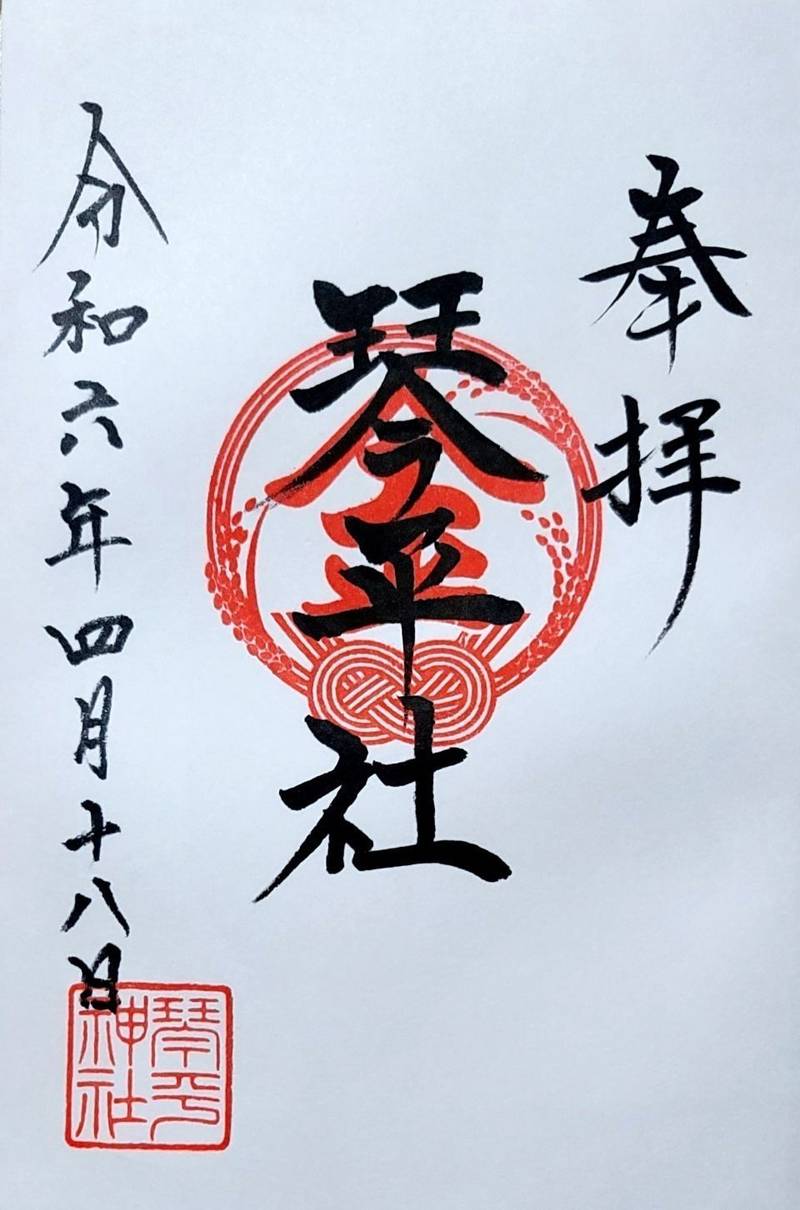 奉拝
琴平社
令和六年四月十八日
琴平神社